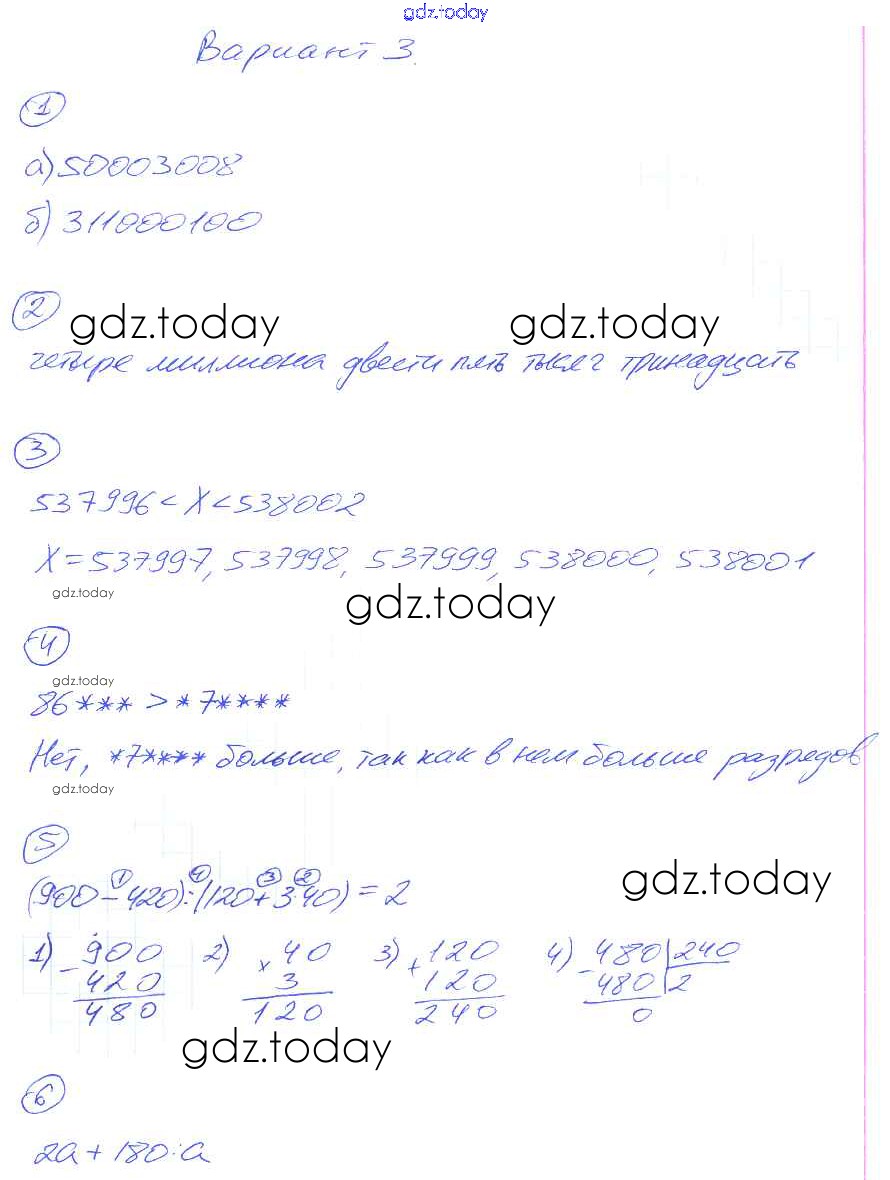 gdz.today
Вариант 3.
1
а) 50003008
б) 311000100
2
gdz.today gdz.today
четыре миллиона двести пять тысяч тринадцать
3
537996 < X < 538002
X = 537997, 537998, 537999, 538000, 538001
gdz.today
gdz.today
4
gdz.today
86*** > *7****
Нет, *7**** больше, так как в нем больше разрядов
gdz.today
5
gdz.today
1 4 3 2
(900 - 420) : (120 + 3·40) = 2
1) 900 2) 40 3) 120 4) 480 | 240
- 420 × 3 + 120 - 480 | 2
480 120 240 0
gdz.today
6
2a + 180 : a